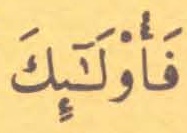 فَأُو۟لَـٰٓئِكَ